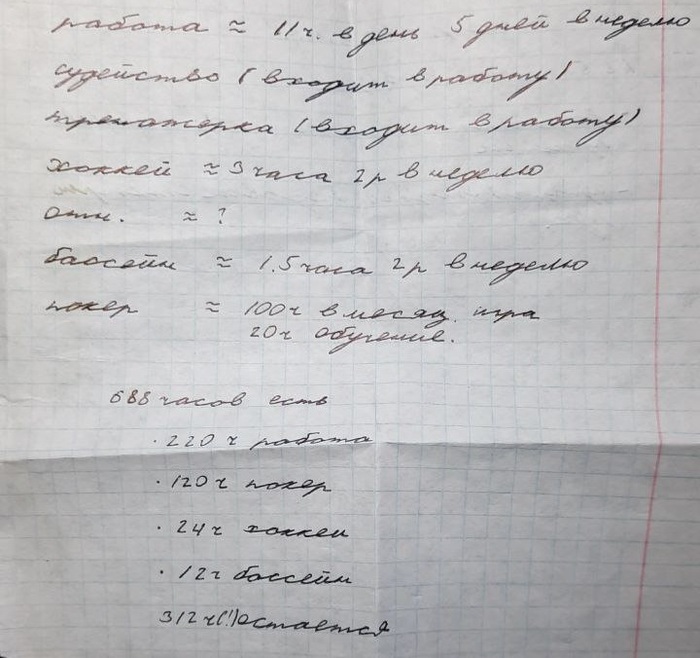 работа ≈ 11ч. в день 5 дней в неделю
судейство (входит в работу)
тренажерка (входит в работу)
хоккей ≈ 3 часа 2р в неделю
отн. ≈ ?
бассейн ≈ 1.5 часа 2р в неделю
покер ≈ 100ч в месяц. игра
20ч обучение.
688 часов есть
· 220ч работа
· 120ч покер
· 24ч хоккей
· 12ч бассейн
312ч(!) остается